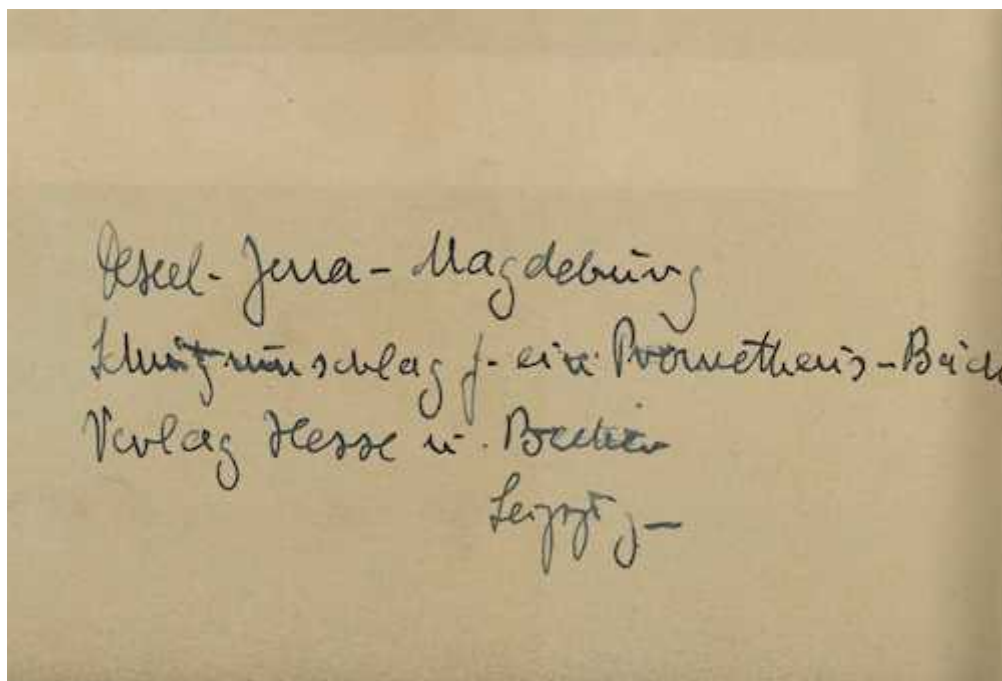 Jena - Magdeburg
Schutzumschlag f. ein Prometheus - Buch
Verlag Hesse u. Becker
Leipzig -